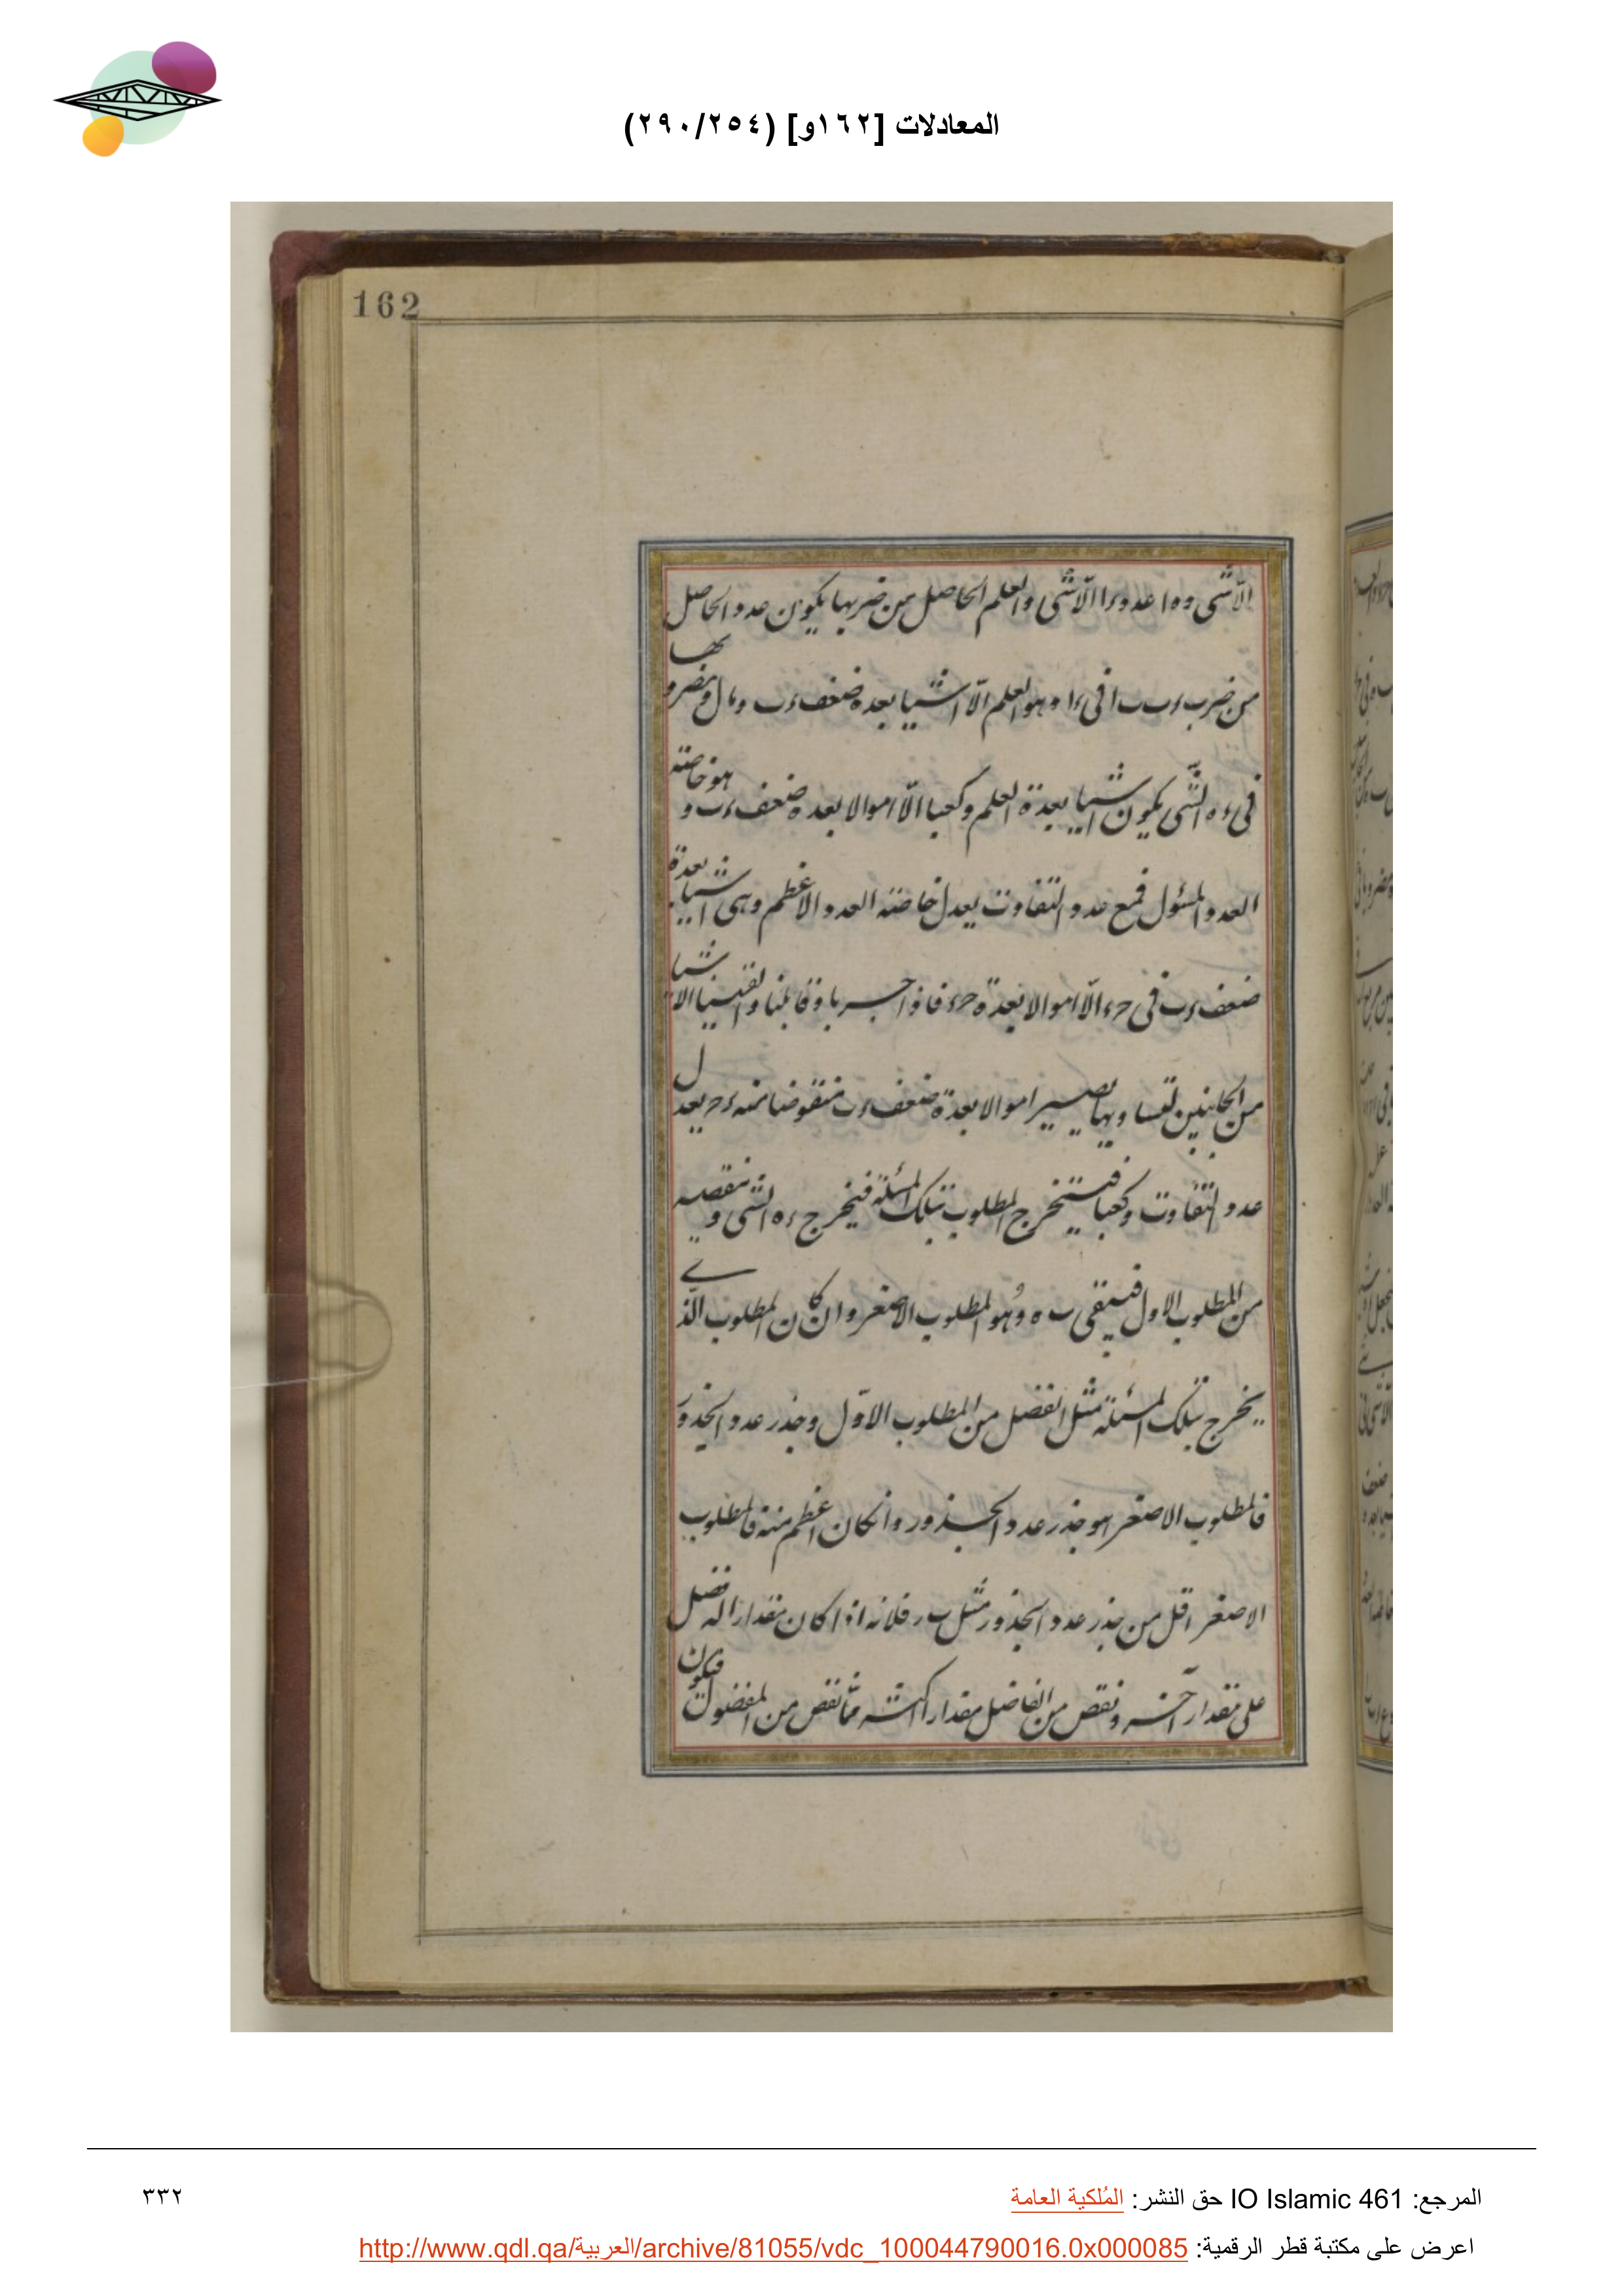 المعادلات [١٦٢و] (٢٩٠/٢٥٤)
162
الّا شى و ه ا عدد ء ا الّا شى والعلم الحاصل من ضربها يكون عدد الحاصل
من ضرب ء ب ب ا فى ء ا وهو العلم الّا اشيا بعده ضعف ء ب و مال ومضروبها
فى ء ه الشى يكون اشيا بعدة العلم وكعبا الّا اموالا بعده ضعف ء ب و هو خاصته
العدد المسئول فمع عدد التفاوت يعدل خاصته العدد الاعظم وهى اشيا بعدة
ضعف ء ب فى ح ء الّا اموالا بعدة ح ء فاذا جبرنا وقابلنا والقينا الاشيا
من الجانبين لتساويها يصير اموالا بعدة ضعف ء ب منقوضا منه ء ح يعدل
عدد التفاوت وكعبا فيستخرج المطلوب بتلك المسئلة فيخرج ء ه الشى و ننقصه
من المطلوب الاول فيبقى ب ه وهو المطلوب الاصغر وان كان المطلوب الذى
يخرج بتلك المسئلة مثل الفضل من المطلوب الاوّل وجذر عدد الجذور
فالمطلوب الاصغر هو جذر عدد الجذور وانكان اعظم منه فالمطلوب
الاصغر اقل من جذر عدد الجذور مثل ب ر فلانه اذا كان مقدار اله فضل
على مقدار آخر ونقص من الفاضل مقدار اكثر مما نقص من المفضول فيكون
المرجع: IO Islamic 461 حق النشر: المُلكية العامة
٣٣٢
اعرض على مكتبة قطر الرقمية: http://www.qdl.qa/العربية/archive/81055/vdc_100044790016.0x000085